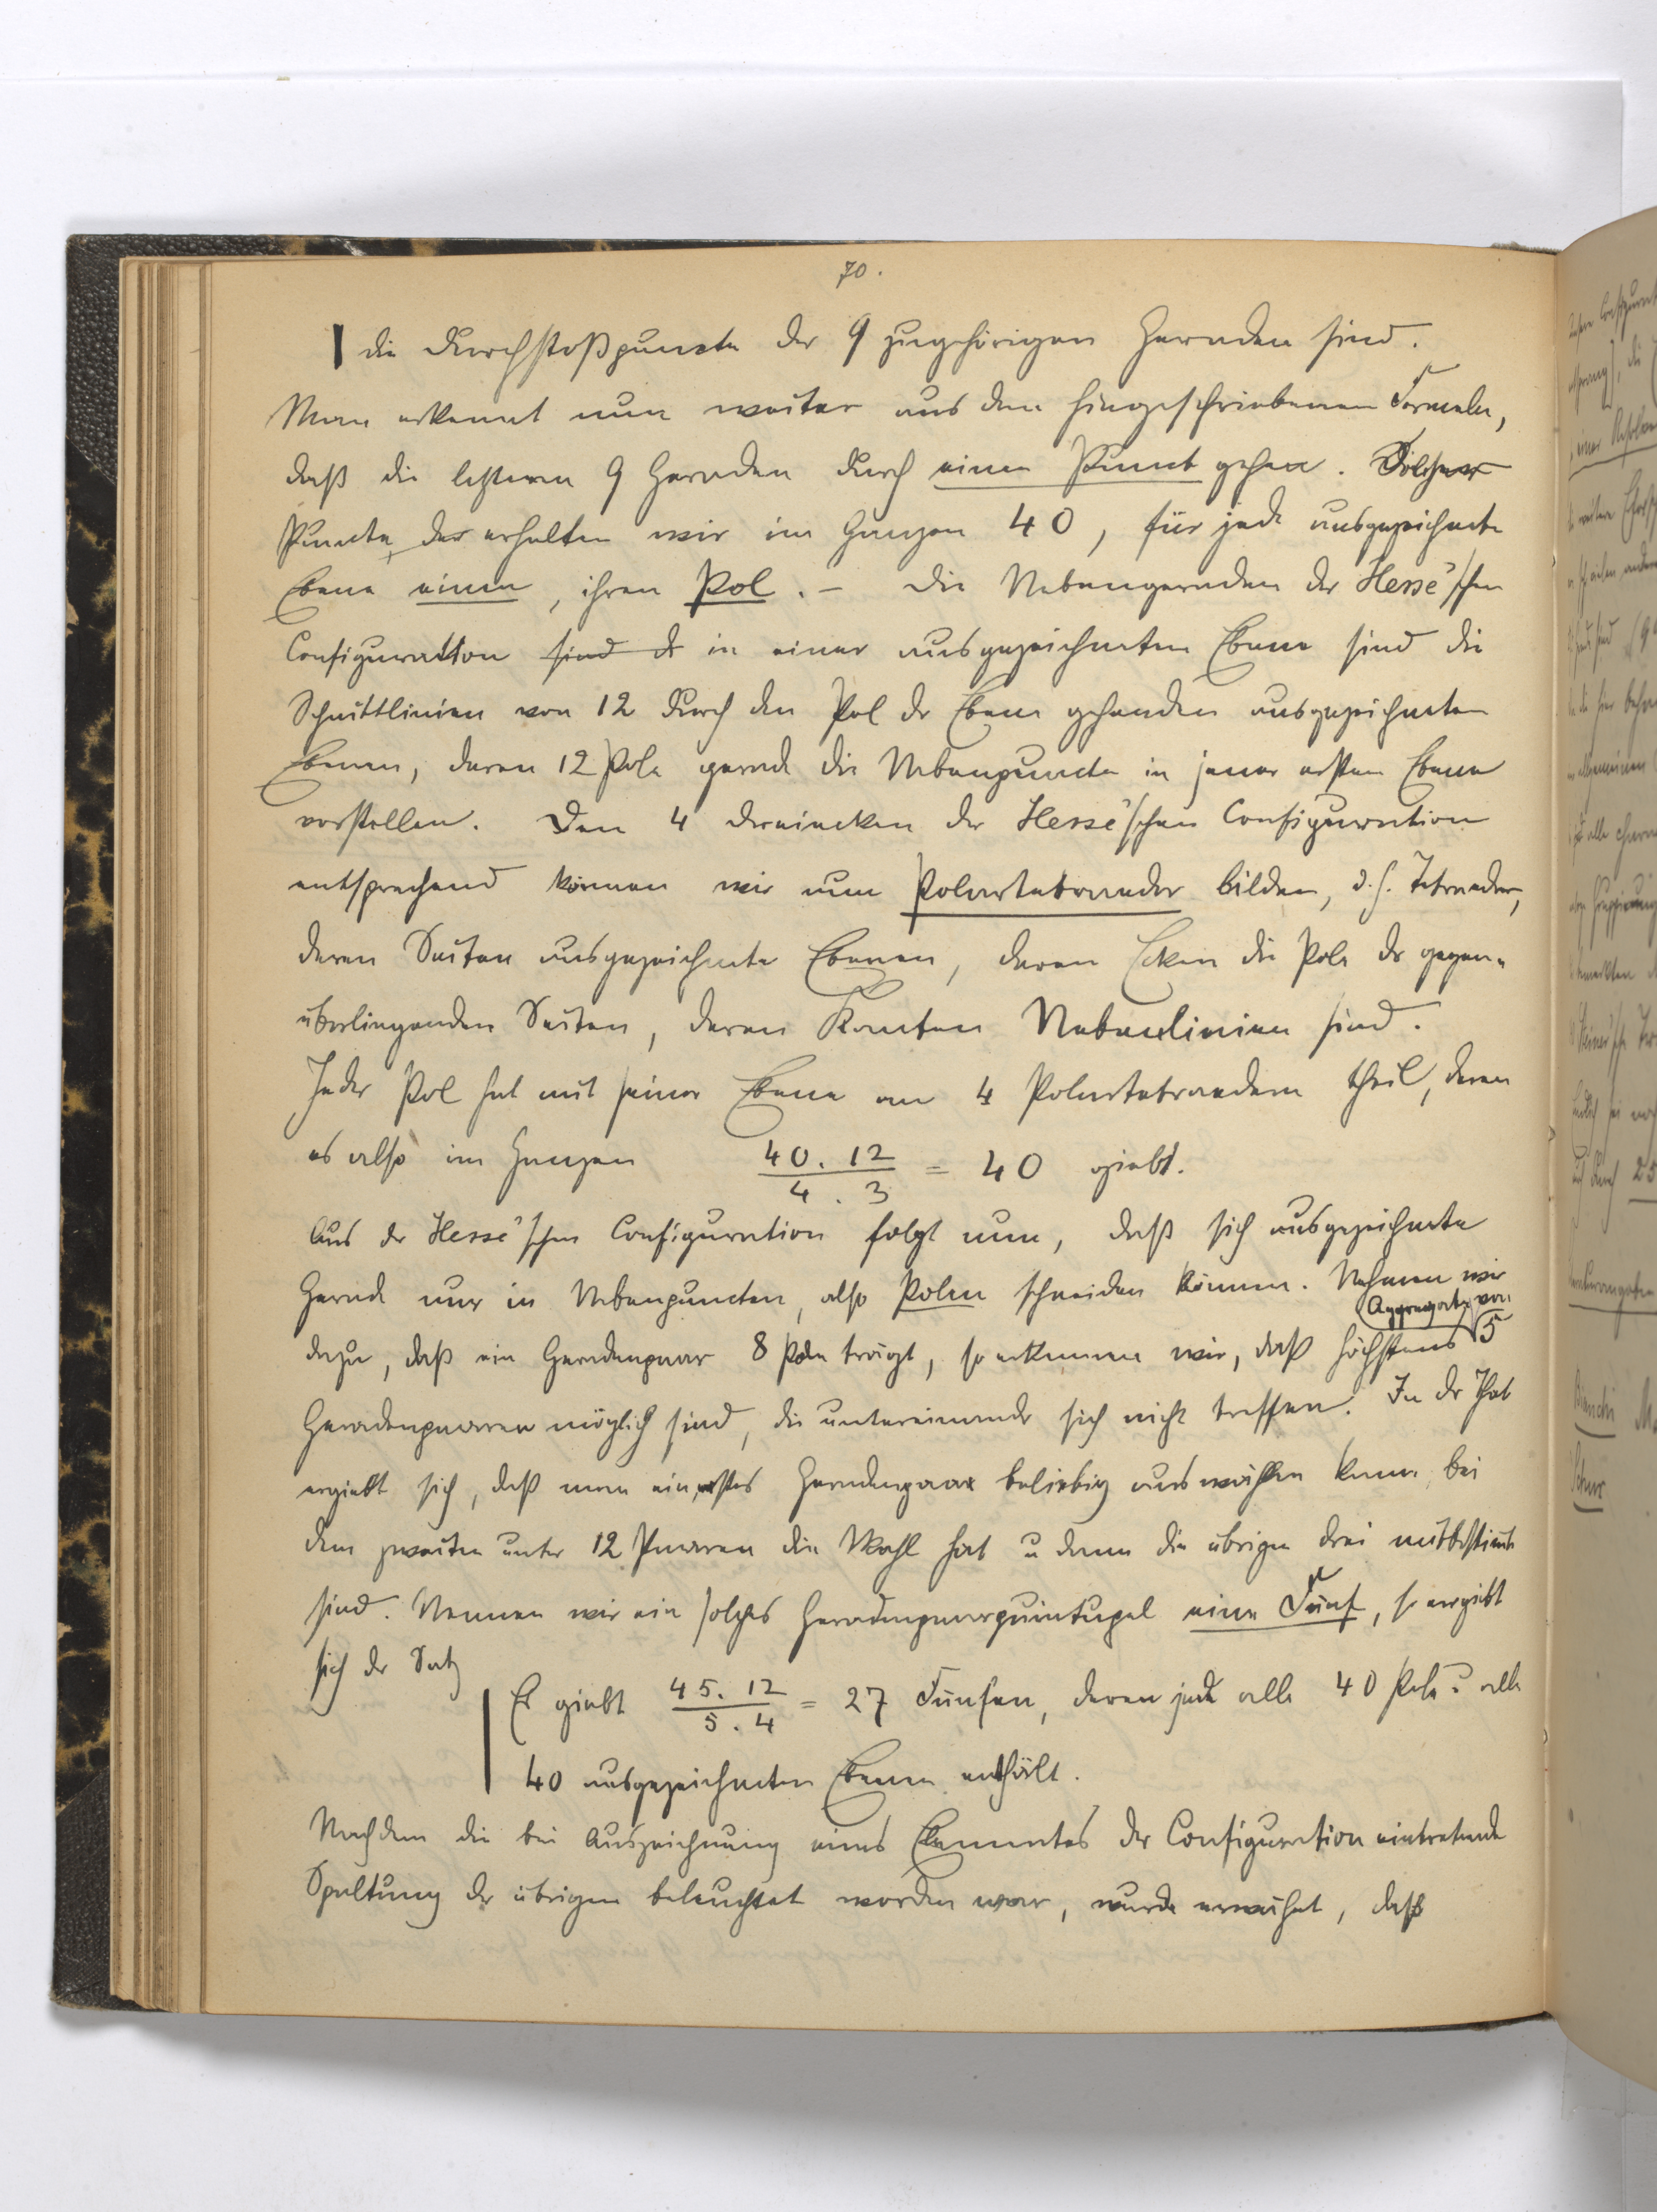 70.
die Durchstoßpuncte der 9 zugehörigen Geraden sind.
Man erkennt nun weiter aus den hingeschriebenen Formeln,
daß die letzteren 9 Geraden durch einen Punct gehen. Solcher
Puncte, der erhalten wir im Ganzen 40, für jede ausgezeichnete
Ebene einen, ihren Pol. – Die Nebengeraden der Hesse'schen
Configuration sind d in einer ausgezeichneten Ebene sind die
Schnittlinien von 12 durch den Pol der Ebene gehenden ausgezeichneten
Ebenen, deren 12 Pole gerade die Nebenpuncte in jener ersten Ebene
vorstellen. Den 4 Dreiecken der Hesse'schen Configuration
entsprechend können wir nun Polartetraeder bilden, d.h. Tetraeder,
deren Seiten ausgezeichnete Ebenen, deren Ecken die Pole der gegen-
überliegenden Seiten, deren Kanten Nebenlinien sind.
Jeder Pol hat mit seiner Ebene an 4 Polartetraedern theil, deren
es also im Ganzen 40.12 / 4.3 = 40 giebt.
Aus der Hesse'schen Configuration folgt nun, daß sich ausgezeichnete
Gerade nur in Nebenpuncten, also Polen schneiden können. Nehmen wir
dazu, daß ein Geradenpaar 8 Pole trägt, so erkennen wir, daß höchstens Aggregate von 5
Geradenpaaren möglich sind, die untereinander sich nicht treffen. In der That
ergiebt sich, daß man ein erstes Geradenpaar beliebig auswählen kann, bei
dem zweiten unter 12 Paaren die Wahl hat u dann die übrigen drei mitbestimmt
sind. Nennen wir ein solches Geradenpaarquintupel eine Fünf, so ergiebt
sich der Satz
Es giebt 45.12 / 5.4 = 27 Fünfen, deren jede alle 40 Pole u alle
40 ausgezeichneten Ebenen enthält.
Nachdem die bei Auszeichnung eines Elementes der Configuration eintretende
Spaltung der übrigen beleuchtet worden war, wurde erwähnt, daß